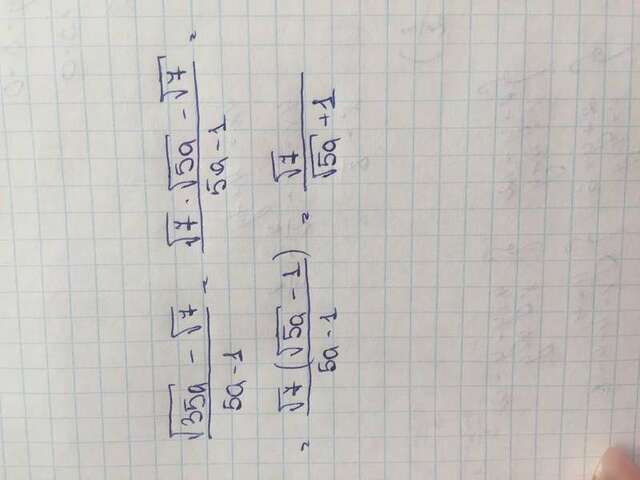 (√35a - √7)/(5a - 1) = (√7 · √5a - √7)/(5a - 1) =
= (√7 (√5a - 1))/(5a - 1) = √7/(√5a + 1)